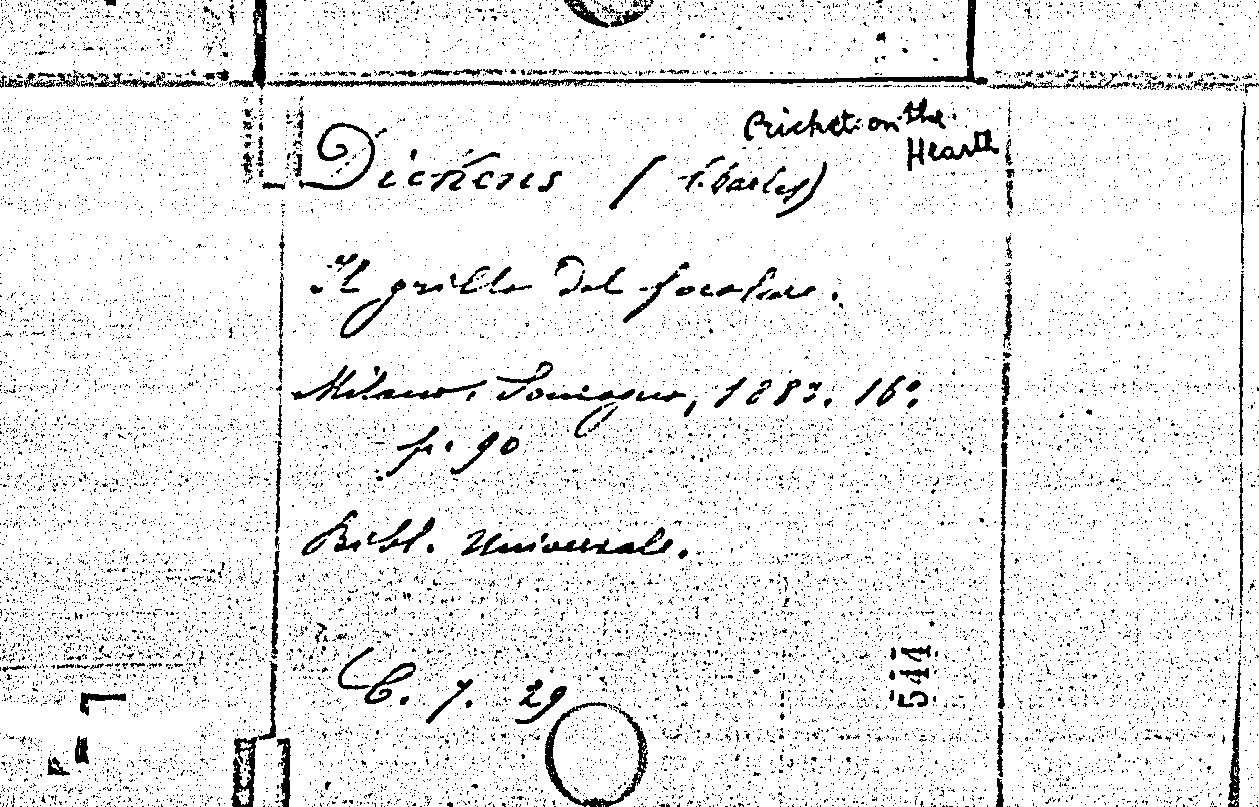 Cricket on the
Hearth
Dickens (Charles)
Il grillo del focolare.
Milano, Sonzogno, 1883. 16°.
p. 90
Bibl. Universale.
C. 7. 29
544